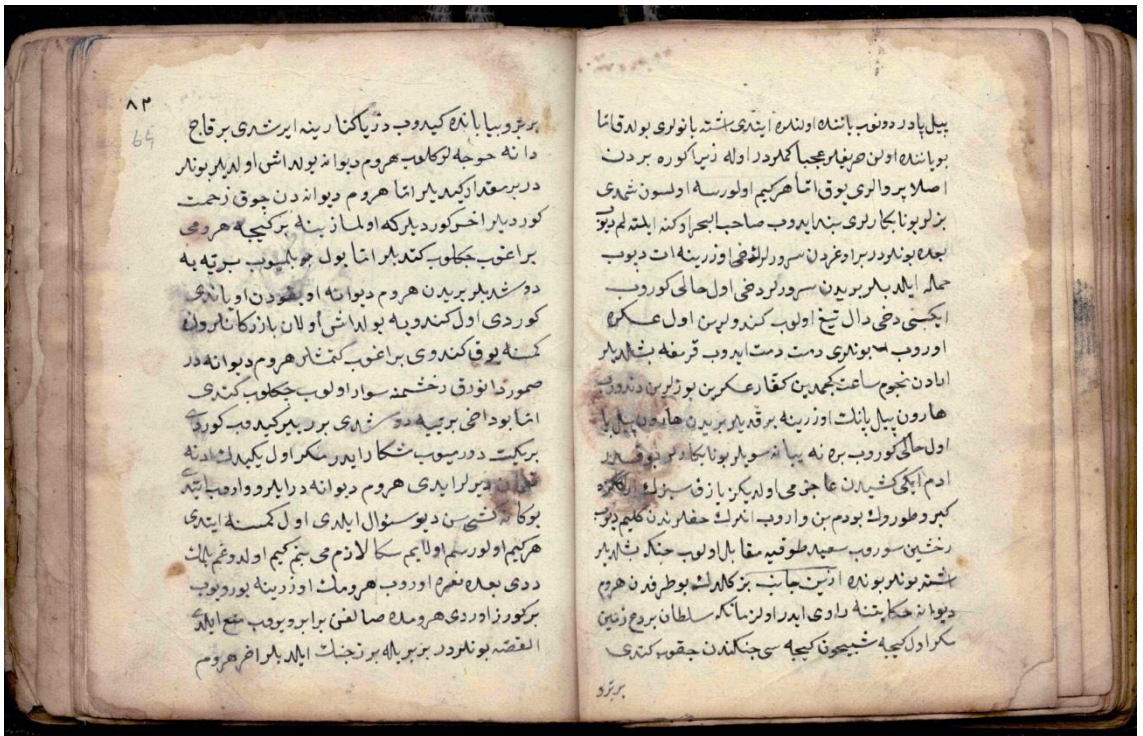 پیل پادر دونوب یاننده اولنلره ایتدی اشته بانولری بولدق اما
بو یاننده اولن حریفلر عجبا کملردر اوله زیرا کوره بردن
اصلا پروالری یوق اما هر کیم اولورسه اولسون شمدی
بز لر بونا بکارلری بند ایدوب صاحب البحر اوکنه ایلته لم دیوب
بعده بونلر در براوغردن سرورلرك دخی اوزرینه ات دپوب
حمله ایلدیلر بریدن سرورلر دخی اول حالی کوروب
ایکیسی دخی دال تیغ اولوب کندولرین اول عسکره
اوروب بونلری دمت دمت ایدوب قرمغه بشلدیلر
ساعت کچمدین کفار عسکرین یوزلرین دندروب
هارون پیل پانك اوزرینه برقدیلر بریدن هارون پیل پا
اول حالی کوروب بره نه یبانه سویلر بونا بکارلر بو قدر
ادم ایکی کشیدن عاجز می اولدیکز یازق سیزك ارلککزه
کبر و طورك بودم بن واروب انلرك حقلرندن کلیم دیوب
رخشین سوروب سعید طوقیه مقابل اولوب جنکه بشلدیلر
اشته بونلر بونده ازین جانب بز کلدك بو طرفدن هروم
دیوانه حکایتنه راوی ایدر اول زمانکه سلطان بردع زمین
مکر اول کیجه شبیخون کیجه سی جنکندن چقوب کتدی
بر یرو
٨٢
64
بر یرو بیابانده کیدوب دریا کنارینه ایرشدی بر قاچ
دانه خوجه لر کلوب هروم دیوانه یولداش اولدیلر بونلر
در بر مقدار کیدیلر اما هروم دیوانه دن چوق زحمت
کوردیلر اخر کوردیلر که اولماز ینه بر کیجه هرومی
براغوب چکلوب کتدیلر اما یول بولمیوب بریه یه
دوشدیلر بریدن هروم دیوانه اویقودن اویاندی
کوردی اول کندویه یولداش اولان بازرکانلردن
کمسه یوق کندوی براغوب کتمشلر هروم دیوانه در
رخشنه سوار اولوب چکلوب کتدی
اما بو داخی بریه یه دوشدی بر بر کیدوب کوردی
بر یکیت دورمیوب شکار ایدر مکر اول یکیدك ادنه
دیرلر ایدی هروم دیوانه در ایلرو واروب ایتدی
بوکا نه کشیسن دیو سؤال ایلدی اول کمسنه ایتدی
هر کیم اولورسم اولایم سکا لازم می بنم کیم اولدوغم بلمك
ددی بعده نعره اوروب هرومك اوزرینه یوریوب
بر کورز اوردی هروم ده صالغن برابر ویروب منع ایلدی
القصه بونلر در بر بریله بر جنك ایلدیلر اخر هروم